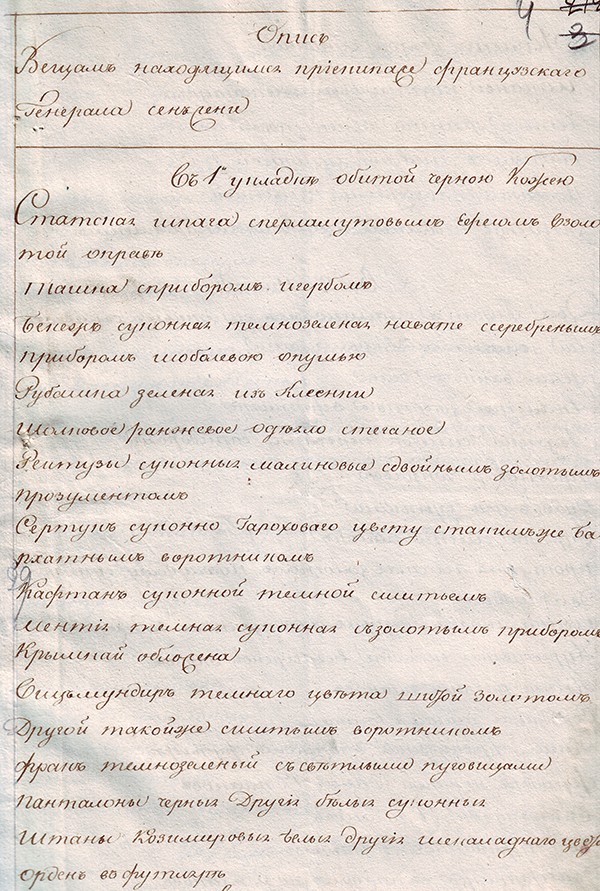 4
3
Опись
Вещамъ находящимсе приепипаже французскаго
Генерала сенъжени
Съ 1й укладке обитой черною Кожею
Статская шпага сперламутовымъ вересомъ взоло
той оправе
Ташка сприборомъ игербомъ
Бекешъ суконная темнозеленая навате ссеребренымъ
приборомъ исоболевою опушью
Рубашка зеленая изъ Клеенки
Шолковое ранжевое одѣяло стеганое
Реитузы суконныя малиновые сдвойнымъ золотымъ
прозументомъ
Сертукъ суконно Гароховаго цвету стакимъже ба
рхатнымъ воротникомъ
Кафтанъ суконной темной сшитьемъ
Ментiя темная суконная съзолотымъ приборомъ
Крымкай обложена
Вицъмундиръ темнаго цвѣта шитой золотомъ
Другой такойже сшитымъ воротникомъ
фракъ темнозеленый съсвѣтлыми пуговицами
панталоны черныя Другiя бѣлыя суконныя
Штаны Козимировыя белыя другiя шекаладнаго цвету
орденъ вофутляре